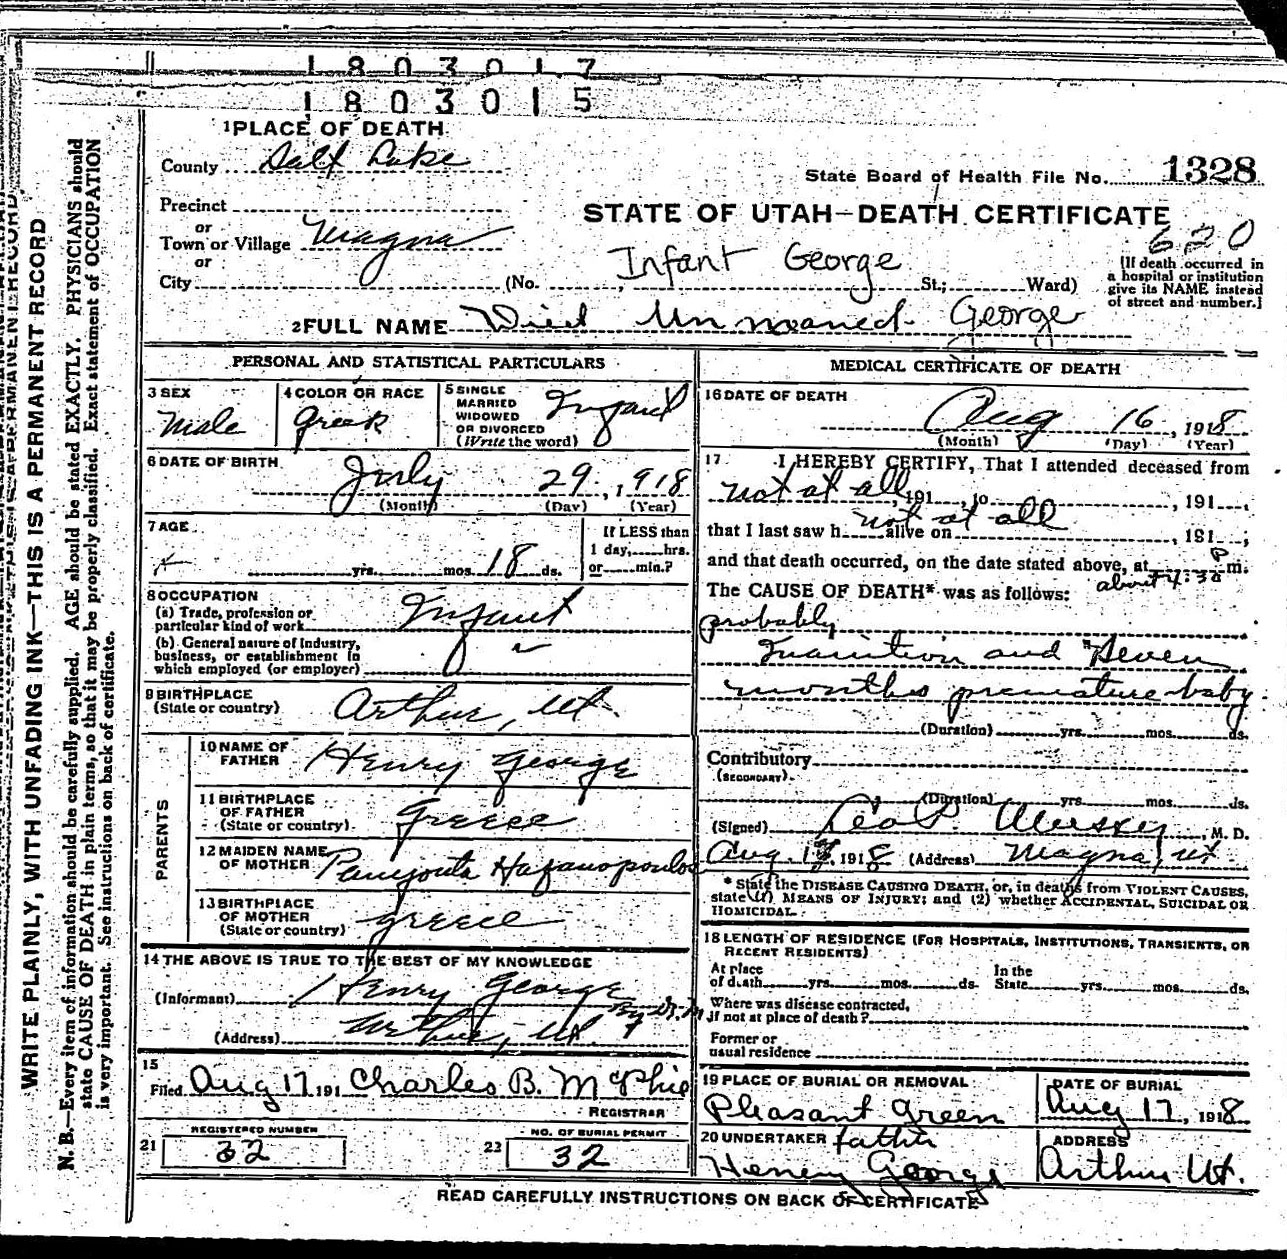 1803017
1803015
1 PLACE OF DEATH
County Salt Lake
State Board of Health File No. 1328
Precinct
or
Town or Village Magna
or
City (No. St.; Ward)
STATE OF UTAH—DEATH CERTIFICATE
620
Infant George
(If death occurred in
a hospital or institution
give its NAME instead
of street and number.)
2 FULL NAME Died Unnamed George
PERSONAL AND STATISTICAL PARTICULARS
3 SEX
Male
4 COLOR OR RACE
Greek
5 SINGLE
MARRIED
WIDOWED
OR DIVORCED
(Write the word)
Infant
6 DATE OF BIRTH
July 29, 1918
(Month) (Day) (Year)
7 AGE
yrs. mos. 18 ds.
If LESS than
1 day, hrs.
or min.?
8 OCCUPATION
(a) Trade, profession or
particular kind of work Infant
(b) General nature of industry,
business, or establishment in
which employed (or employer)
9 BIRTHPLACE
(State or country) Arthur, Ut.
PARENTS
10 NAME OF
FATHER Henry George
11 BIRTHPLACE
OF FATHER
(State or country) Greece
12 MAIDEN NAME
OF MOTHER
13 BIRTHPLACE
OF MOTHER
(State or country) Greece
14 THE ABOVE IS TRUE TO THE BEST OF MY KNOWLEDGE
(Informant) Henry George
(Address) Arthur, Ut.
15
Filed Aug 17, 191 Charles B. McPhie
REGISTRAR
21 REGISTERED NUMBER
32
22 NO. OF BURIAL PERMIT
32
MEDICAL CERTIFICATE OF DEATH
16 DATE OF DEATH
Aug 16, 1918
(Month) (Day) (Year)
17. I HEREBY CERTIFY, That I attended deceased from
not at all, 191 , to , 191 ,
that I last saw h alive on not at all , 191 ;
and that death occurred, on the date stated above, at about 4:30 P m.
The CAUSE OF DEATH* was as follows:
probably
Inanition and Seven
months premature baby
(Duration) yrs. mos. ds.
Contributory
(SECONDARY)
(Duration) yrs. mos. ds.
(Signed) Leo P. , M. D.
Aug. , 1918 (Address) Magna, Ut
* State the DISEASE CAUSING DEATH, or, in deaths from VIOLENT CAUSES,
state (1) MEANS OF INJURY; and (2) whether ACCIDENTAL, SUICIDAL OR
HOMICIDAL.
18 LENGTH OF RESIDENCE (FOR HOSPITALS, INSTITUTIONS, TRANSIENTS, OR
RECENT RESIDENTS)
At place
of death yrs. mos. ds.
In the
State yrs. mos. ds.
Where was disease contracted,
if not at place of death?
Former or
usual residence
19 PLACE OF BURIAL OR REMOVAL
Pleasant Green
DATE OF BURIAL
Aug 17, 1918
20 UNDERTAKER father
Henry George
ADDRESS
Arthur Ut.
READ CAREFULLY INSTRUCTIONS ON BACK OF CERTIFICATE
WRITE PLAINLY, WITH UNFADING INK—THIS IS A PERMANENT RECORD
N. B.—Every item of information should be carefully supplied. AGE should be stated EXACTLY. PHYSICIANS should
state CAUSE OF DEATH in plain terms, so that it may be properly classified. Exact statement of OCCUPATION
is very important. See instructions on back of certificate.